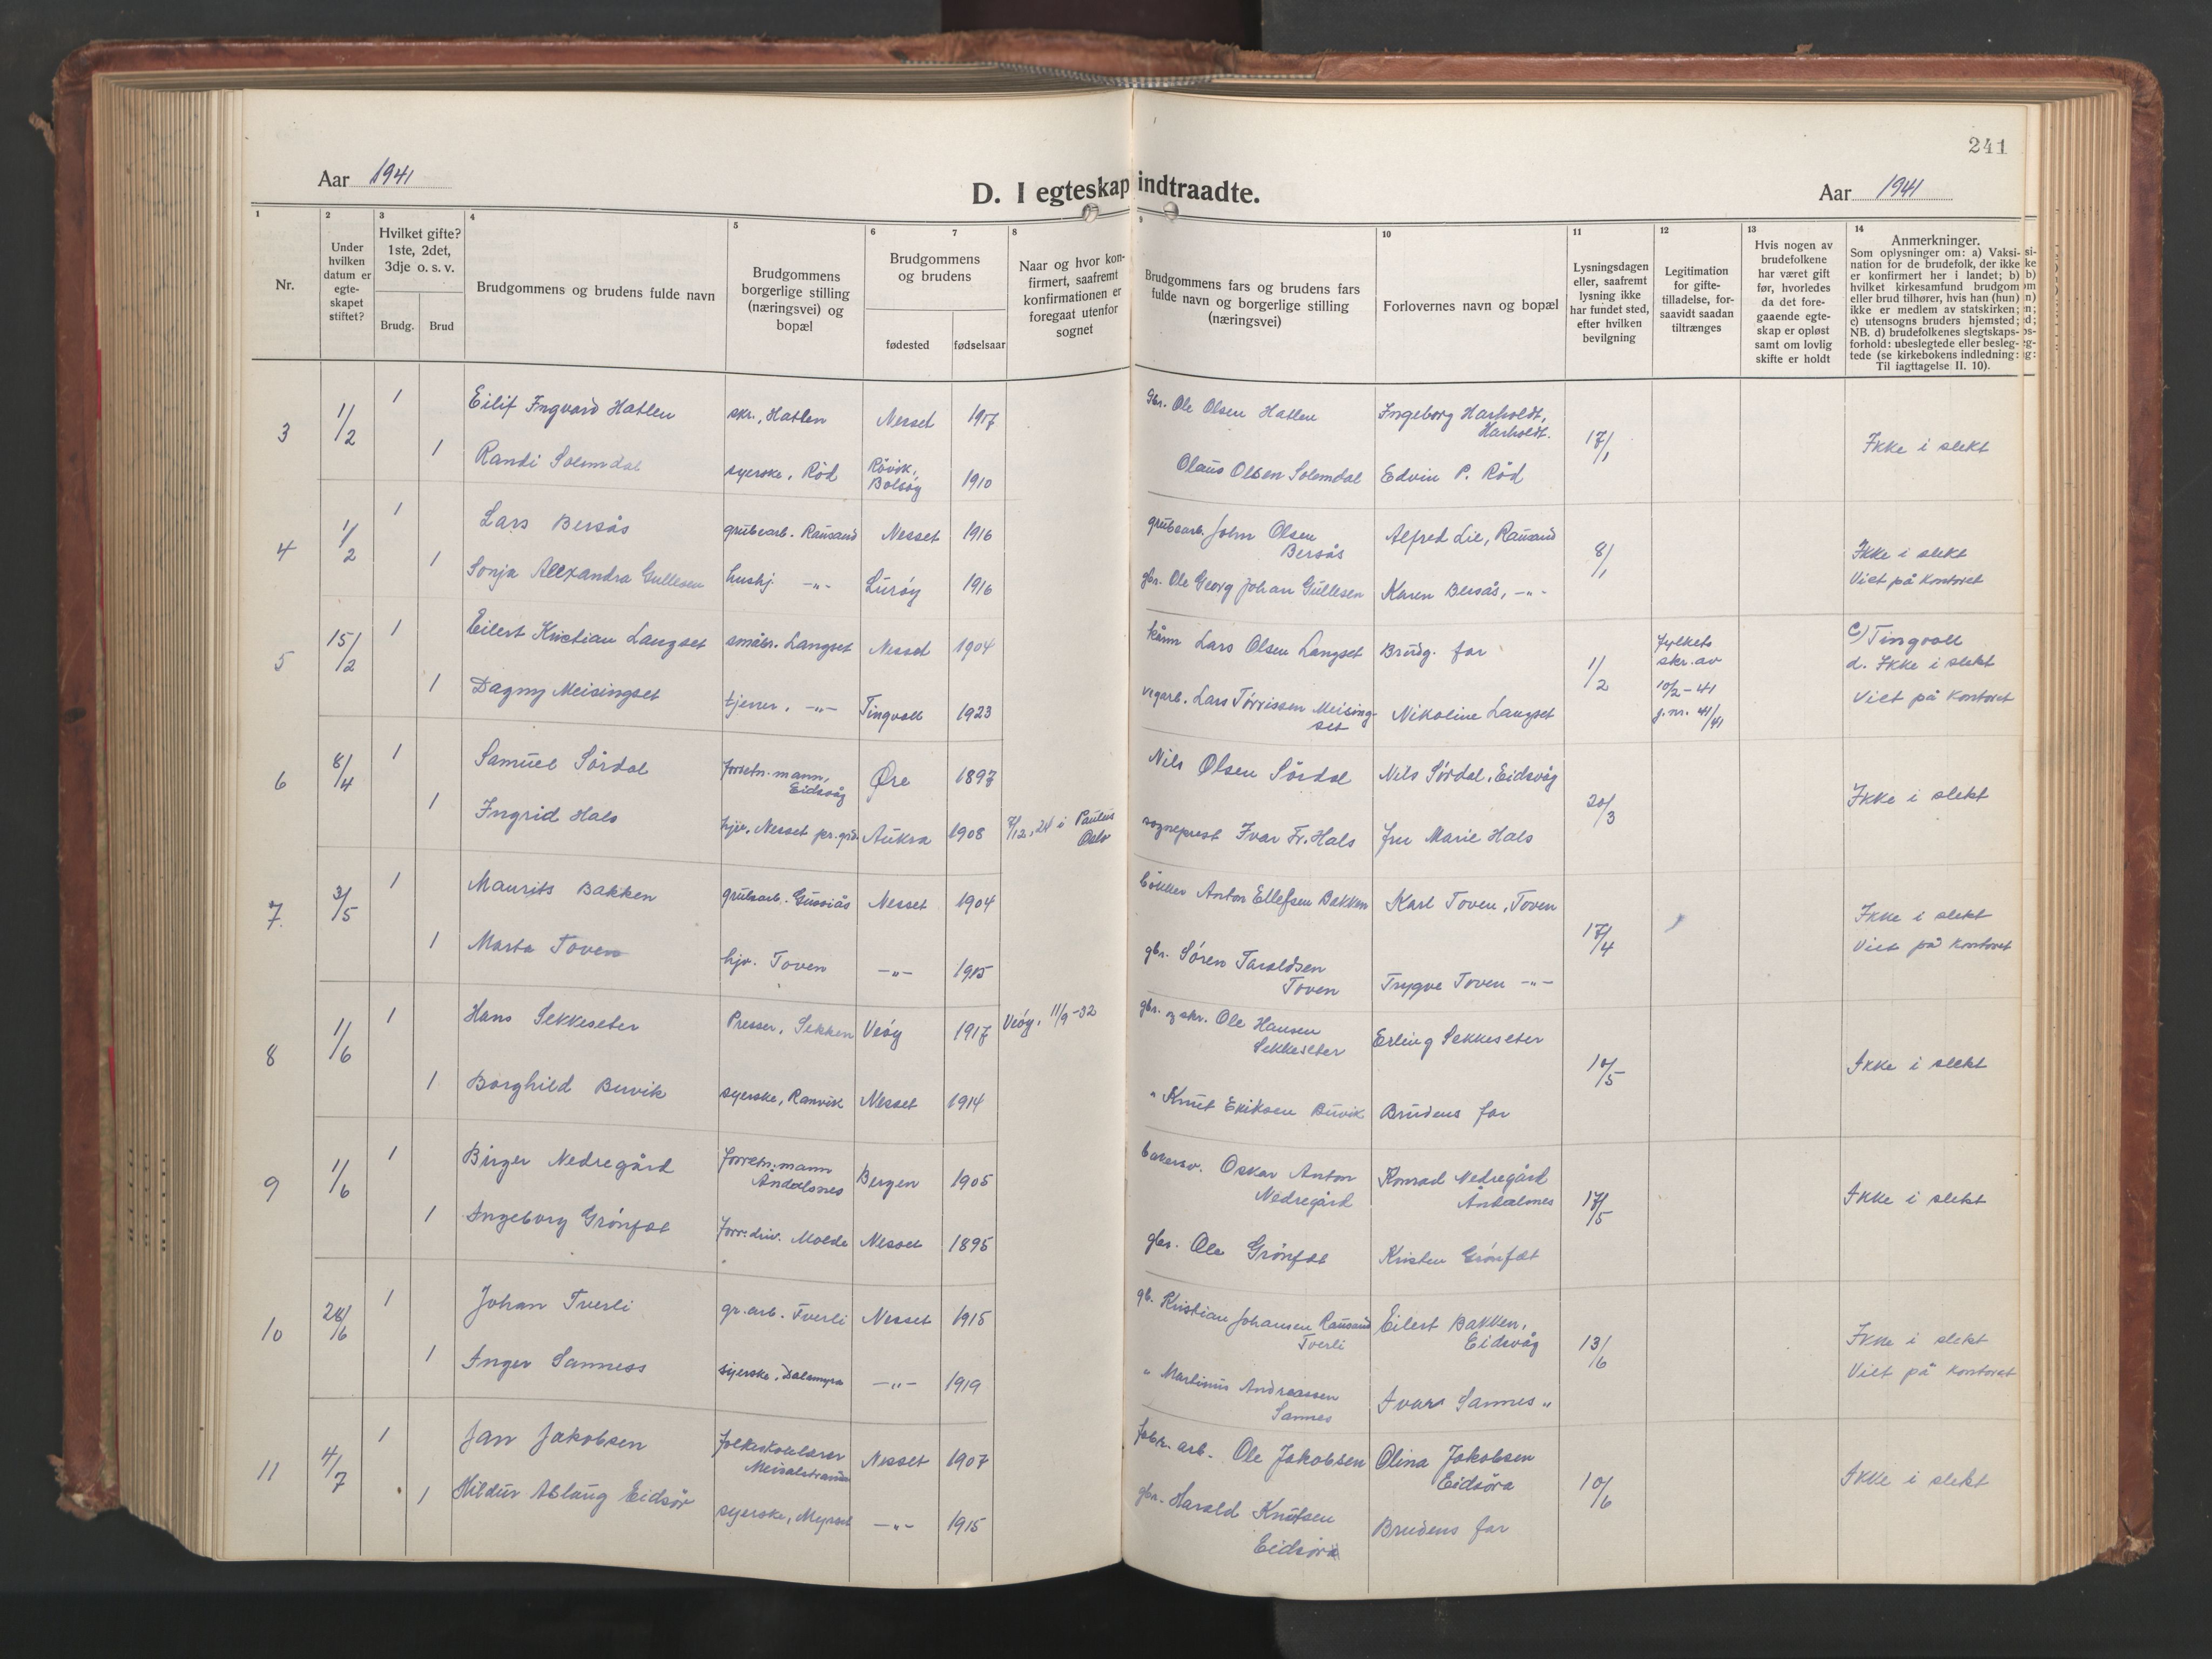 241
Aar 1941
D. I egteskap indtraadte.
Aar 1941
1
2
3
4
5
6
7
8
9
10
11
12
13
14
Nr.
Under hvilken datum er egte-skapet stiftet?
Hvilket gifte? 1ste, 2det, 3dje o. s. v.
Brudg.
Brud
Brudgommens og brudens fulde navn
Brudgommens borgerlige stilling (næringsvei) og bopæl
Brudgommens og brudens
fødested
fødselsaar
Naar og hvor kon-firmert, saafremt konfirmationen er foregaat utenfor sognet
Brudgommens fars og brudens fars fulde navn og borgerlige stilling (næringsvei)
Forlovernes navn og bopæl
Lysningsdagen eller, saafremt lysning ikke har fundet sted, efter hvilken bevilgning
Legitimation for gifte-tilladelse, for-saavidt saadan tiltrænges
Hvis nogen av brudefolkene har været gift før, hvorledes da det fore-gaaende egte-skap er opløst samt om lovlig skifte er holdt
Anmerkninger.
Som oplysninger om: a) Vaksi-nation for de brudefolk, der ikke er konfirmert her i landet; b) hvilket kirkesamfund brudgom eller brud tilhører, hvis han (hun) ikke er medlem av statskirken; c) utensogns bruders hjemsted; NB. d) brudefolkenes slegtskaps-forhold: ubeslegtede eller besleg-tede (se kirkebokens indledning: Til iagttagelse II. 10).
3 1/2 1 Eilif Ingvard Hatlen skr., Hatlen Nesset 1917 Gbr. Ole Olsen Hatlen Ingeborg Harholdt, Harholdt. 17/1 Ikke i slekt
1 Randi Solemdal syerske, Rød Røvik, Bolsøy 1910 Olaus Olsen Solemdal Edvin P. Rød
4 1/2 1 Lars Bersås grubearb. Rausand Nesset 1916 grubearb. John Olsen Bersås Alfred Lie, Rausand 8/1 Ikke i slekt
1 Sonja Alexandra Gullesen hushj. -"- Lurøy 1916 gbr. Ole Georg Johan Gullesen Karen Bersås, -"- Viet på kontoret
5 15/2 1 Eilert Kristian Langset småbr. Langset Nesset 1904 Lars Olsen Langset Brudg. far 1/2 Fylkets skr. av 10/2-41 j.nr. 41/41 c) Tingvoll d. Ikke i slekt
1 Dagny Meisingset tjener, -"- Tingvoll 1923 vegarb. Lars Tørrissen Meising-set Nikoline Langset Viet på kontoret
6 8/4 1 Samuel Sørdal forretn.mann, Eidsvåg Øre 1897 Nils Olsen Sørdal Nils Sørdal, Eidsvåg 20/3 Ikke i slekt
1 Ingrid Hals hjv. Nesset pr.grd. Aukra 1908 /12, 24 i Paulus Oslo sogneprest Ivar Fr. Hals fru Marie Hals
7. 3/5 1 Maurits Bakken grubearb. Gussiås Nesset 1904 bøkker Anton Ellefsen Bakken Karl Toven, Toven 17/4 Ikke i slekt
1 Marta Toven hjv. Toven -"- 1915 gbr. Søren Taraldsen Toven Trygve Toven -"- Viet på kontoret
8 1/6 1 Hans Sekkeseter Presser, Sekken Veøy 1917 Veøy, 11/9-32 gbr. og skr. Ole Hansen Sekkeseter Erling Sekkeseter 10/5 Ikke i slekt
1 Borghild Buvik syerske, Ranvik Nesset 1914 " Knut Eriksen Buvik Brudens far
9 1/6 1 Birger Nedregård Forretn.mann Åndalsnes Bergen 1905 bakersv. Oskar Anton Nedregård Konrad Nedregård Åndalsnes 17/5 Ikke i slekt
1 Ingeborg Grønfet Forr.driv. Molde Nesset 1895 gbr. Ole Grønfet Kristen Grønfet
10 28/6 1 Johan Tverli gr.arb. Tverli Nesset 1915 gb. Kristian Johansen Rausand Tverli Eilert Bakken, Eidsvåg 13/6 Ikke i slekt
1 Inger Sanness syerske, Dalamyra -"- 1919 " Martinus Andreassen Sannes Ivar Sannes " Viet på kontoret
11 4/7 1 Jan Jakobsen folkeskolelærer Meisalstranda Nesset 1907 fabr. arb. Ole Jakobsen Olina Jakobsen Eidsøra 10/6 Ikke i slekt
1 Hildur Aslaug Eidsør syerske, Myrset -"- 1915 gbr. Harald Knutsen Eidsøra Brudens far